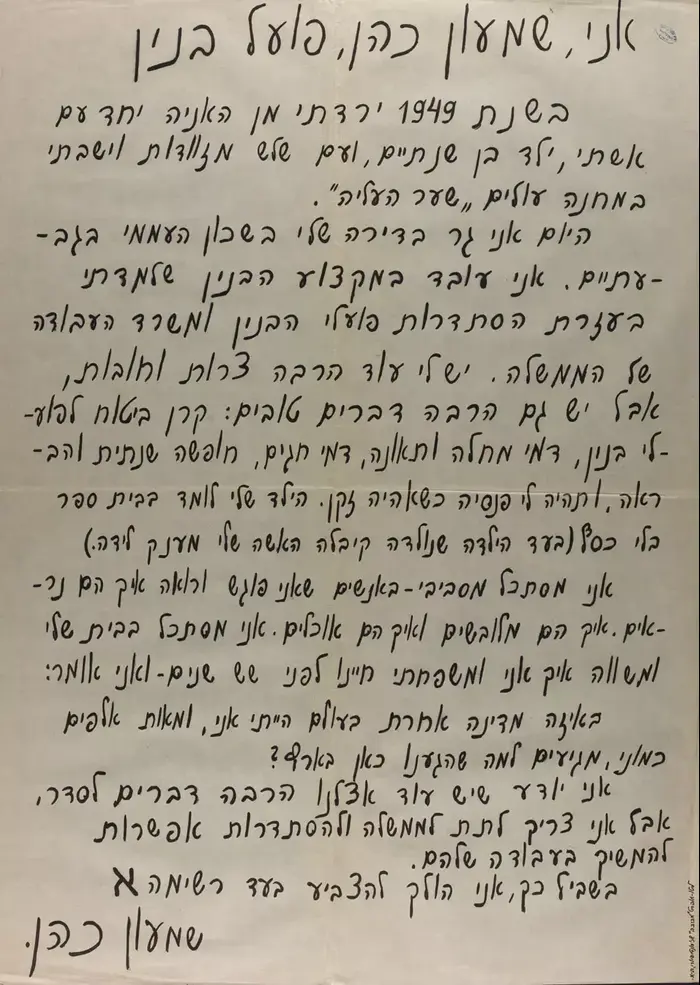 אני, שמעון כהן, פועל בנין
בשנת 1949 ירדתי מן האניה יחד עם
אשתי, ילד בן שנתיים, ועם שלש מזוודות וישבתי
במחנה עולים „שער העליה”.
היום אני גר בדירה שלי בשכון העממי בגב-
-עתיים. אני עובד במקצוע הבנין שלמדתי
בעזרת הסתדרות פועלי הבנין ומשרד העבודה
של הממשלה. יש לי עוד הרבה צרות וחובות,
אבל יש גם הרבה דברים טובים: קרן ביטוח לפוע-
-לי בנין, דמי מחלה ותאונה, דמי חגים, חופשה שנתית והב-
ראה, ותהיה לי פנסיה כשאהיה זקן. הילד שלי לומד בבית ספר
בלי כסף (בעד הילדה שנולדה קיבלה האשה שלי מענק לידה.)
אני מסתכל מסביבי - באנשים שאני פוגש ורואה איך הם נר-
-אים. איך הם מלובשים ואיך הם אוכלים. אני מסתכל בבית שלי
ומשווה איך אני ומשפחתי חיינו לפני שש שנים - ואני אומר:
באיזה מדינה אחרת בעולם הייתי אני, ומאות אלפים
כמוני, מגיעים למה שהגענו כאן בארץ?
אני יודע שיש עוד אצלנו הרבה דברים לסדר,
אבל אני צריך לתת לממשלה ולהסתדרות אפשרות
להמשיך בעבודה שלהם.
בשביל כך, אני הולך להצביע בעד רשימה א
שמעון כהן.